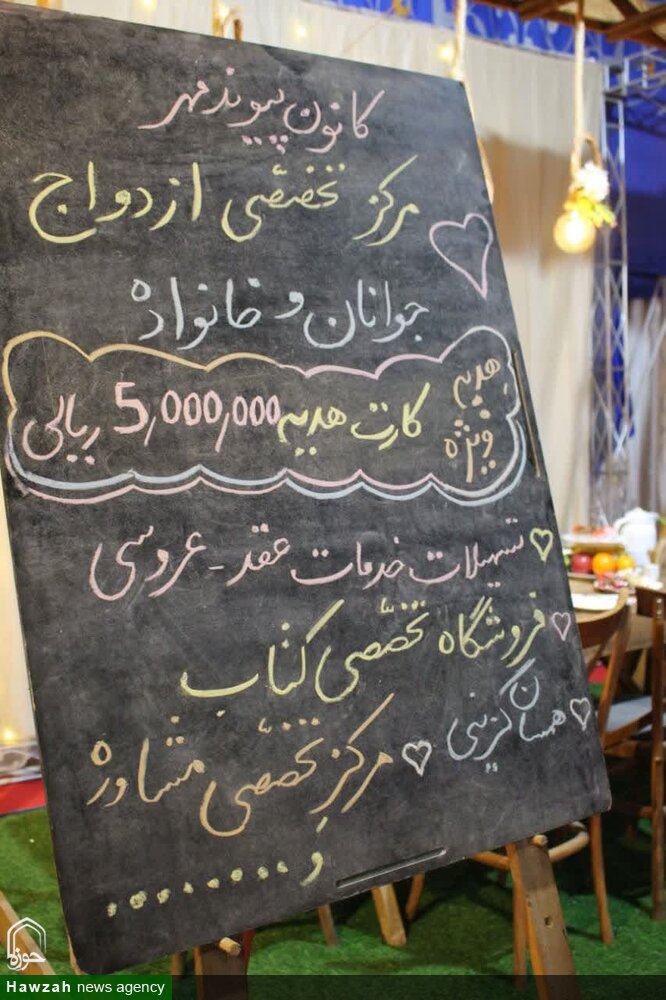 کانون پیوند مهر
مرکز تخصّصی ازدواج
جوانان و خانواده
هدیه ویژه
کارت هدیه 5,000,000 ریالی
تسهیلات خدمات عقد - عروسی
فروشگاه تخصّصی کتاب
همسان گزینی
مرکزِ تخصّصی مشاوره
وَ .........
حوزه
Hawzah news agency